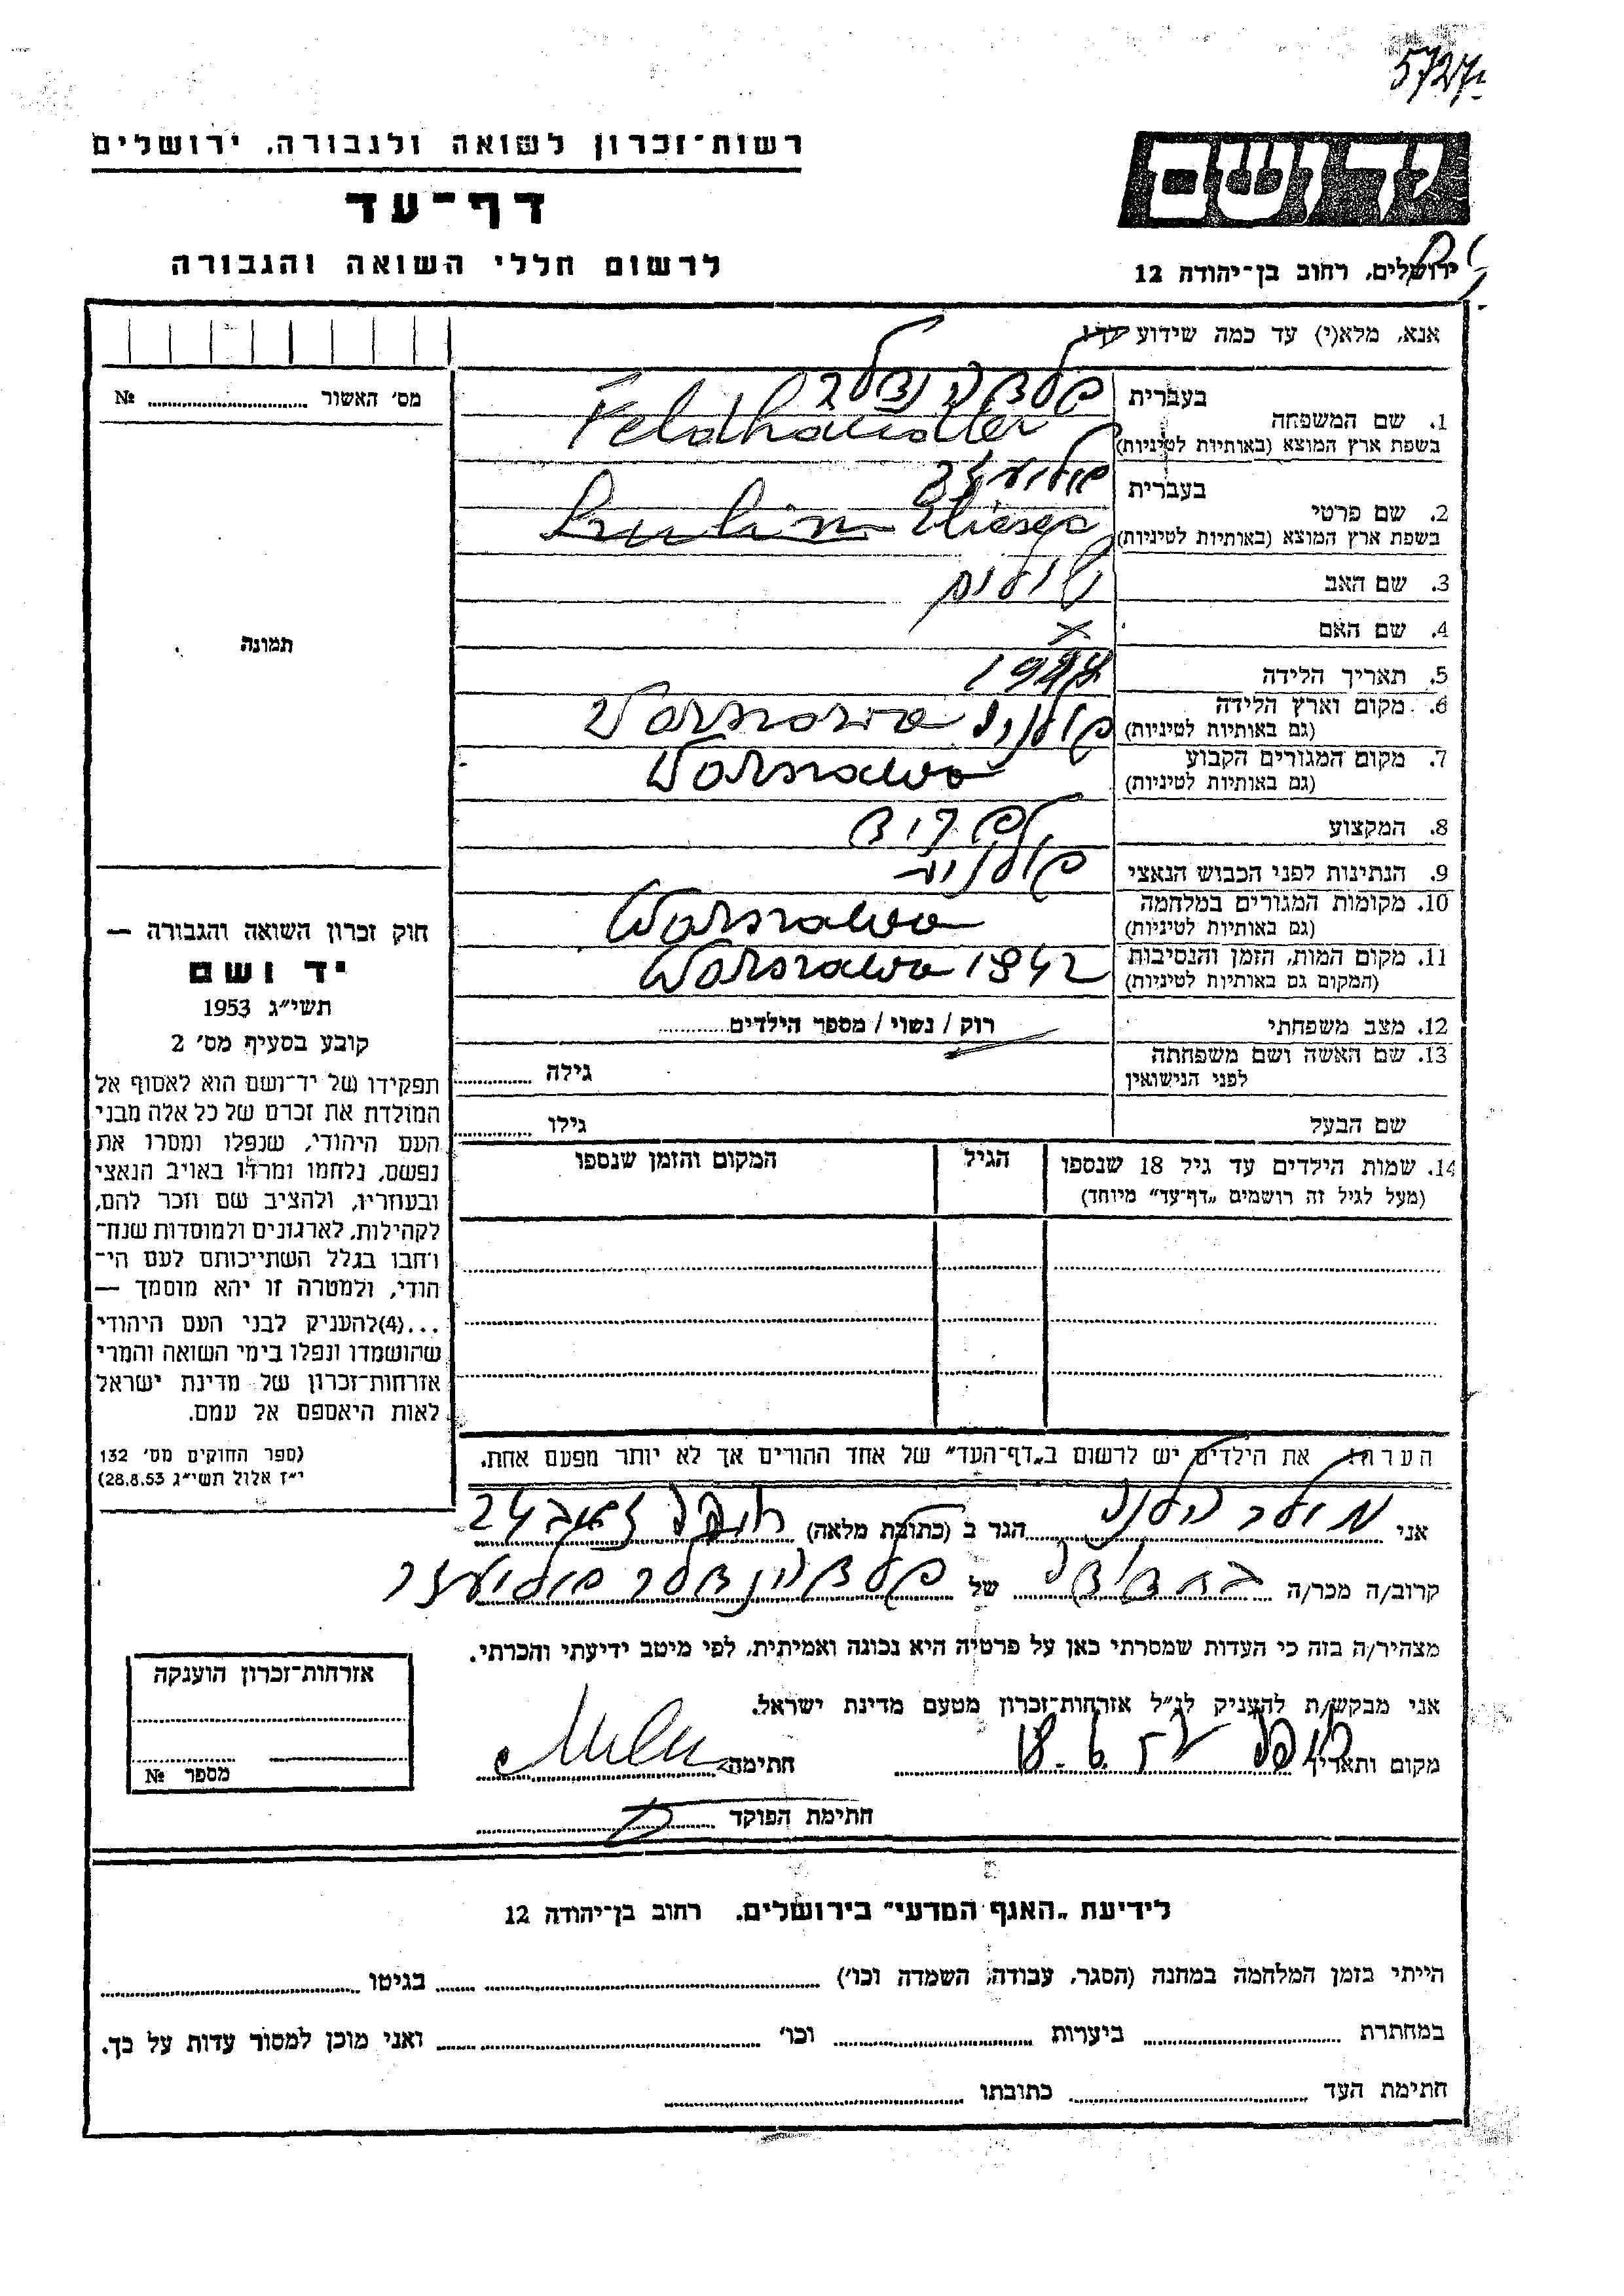 5727
רשות־זכרון לשואה ולגבורה, ירושלים
ידושם
דף־עד
לרשום חללי השואה והגבורה
ירושלים, רחוב בן־יהודה 12
אנא, מלא(י) עד כמה שידוע לך!
מס׳ האשור ........ №
תמונה
1. שם המשפחה
בעברית פלדהנדלר
בשפת ארץ המוצא (באותיות לטיניות) Feldhandler
2. שם פרטי
בעברית אליעזר
בשפת ארץ המוצא (באותיות לטיניות) Elieser
3. שם האב שולום
4. שם האם X
5. תאריך הלידה
6. מקום וארץ הלידה
(גם באותיות לטיניות) פולניה Warszawa
7. מקום המגורים הקבוע
(גם באותיות לטיניות) Warszawa
8. המקצוע
9. הנתינות לפני הכבוש הנאצי פולניה
10. מקומות המגורים במלחמה
(גם באותיות לטיניות) Warszawa
11. מקום המות, הזמן והנסיבות
(המקום גם באותיות לטיניות) Warszawa 1942
12. מצב משפחתי רוק / נשוי / מספר הילדים........
13. שם האשה ושם משפחתה
לפני הנישואין גילה ........
שם הבעל גילו ........
14. שמות הילדים עד גיל 18 שנספו
(מעל לגיל זה רושמים „דף־עד” מיוחד)
הגיל
המקום והזמן שנספו
חוק זכרון השואה והגבורה —
יד ושם
תשי״ג 1953
קובע בסעיף מס׳ 2
תפקידו של יד־ושם הוא לאסוף אל
המולדת את זכרם של כל אלה מבני
העם היהודי, שנפלו ומסרו את
נפשם, נלחמו ומרדו באויב הנאצי
ובעוזריו, ולהציב שם וזכר להם,
לקהילות, לארגונים ולמוסדות שנח־
רבו בגלל השתייכותם לעם הי־
הודי, ולמטרה זו יהא מוסמך —
...(4)להעניק לבני העם היהודי
שהושמדו ונפלו בימי השואה והמרי
אזרחות־זכרון של מדינת ישראל
לאות היאספם אל עמם.
(ספר החוקים מס׳ 132
י״ז אלול תשי״ג 28.8.53)
הערה: את הילדים יש לרשום ב„דף־העד” של אחד ההורים אך לא יותר מפעם אחת.
אני מילר הלנה הגר ב (כתובת מלאה) חיפה
קרוב/ה מכר/ה של פלדהנדלר אליעזר
מצהיר/ה בזה כי העדות שמסרתי כאן על פרטיה היא נכונה ואמיתית, לפי מיטב ידיעתי והכרתי.
אני מבקש/ת להעניק לנ״ל אזרחות־זכרון מטעם מדינת ישראל.
מקום ותאריך חיפה 18.6.57 חתימה
חתימת הפוקד
אזרחות־זכרון הוענקה
מספר №
לידיעת „האגף המדעי” בירושלים, רחוב בן־יהודה 12
הייתי בזמן המלחמה במחנה (הסגר, עבודה, השמדה וכו׳) ........ בגיטו ........
במחתרת ........ ביערות ........ וכו׳ ........ ואני מוכן למסור עדות על כך.
חתימת העד ........ כתובתו ........